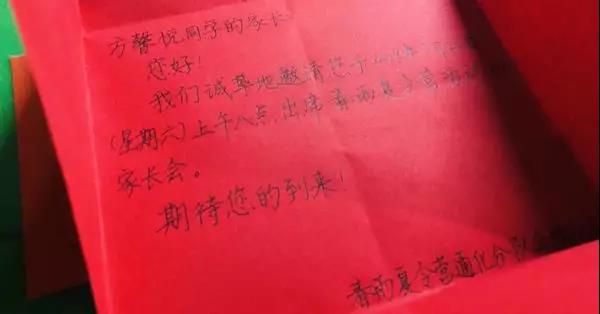 方馨悦同学的家长:
您好!
我们诚挚地邀请您于
(星期六)上午八点,出席春雨夏令营
家长会。
期待您的到来!
春雨夏令营通化分队